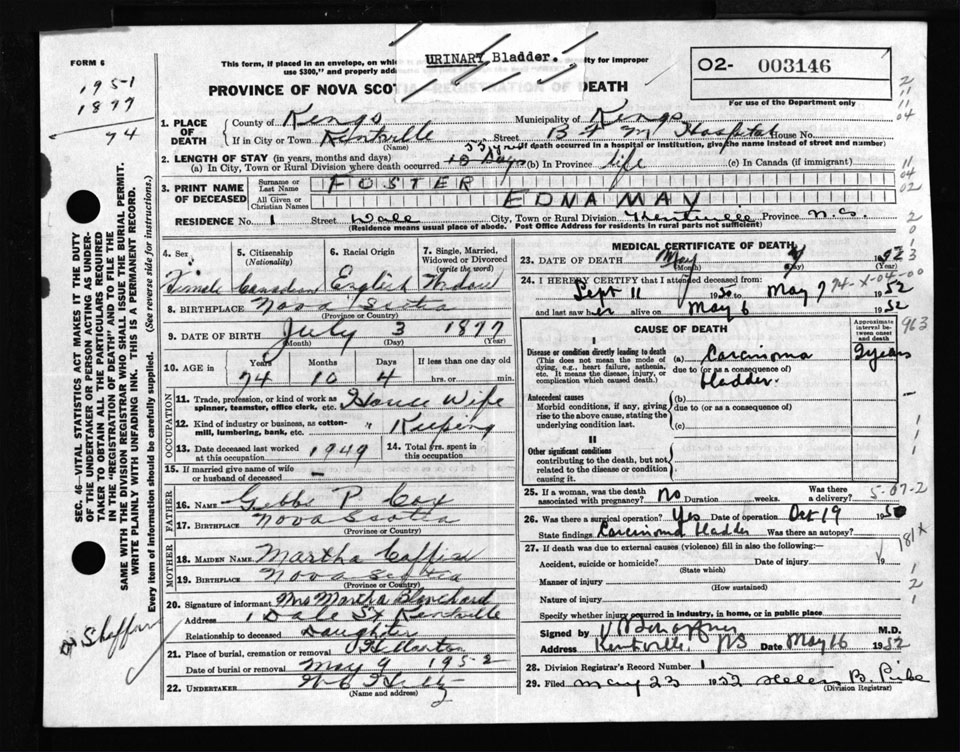 URINARY Bladder.
FORM 6
This form, if placed in an envelope, on whic
y for improper
use $300," and properly addr
1951
1877
74
PROVINCE OF NOVA SCOT
DEATH
02- 003146
For use of the Department only
1. PLACE OF DEATH
County of Kings Municipality of Kings
If in City or Town Kentville Street B F M Hospital House No.
(Name) (If death occurred in a hospital or institution, give the name instead of street and number)
2. LENGTH OF STAY (in years, months and days)
(a) In City, Town or Rural Division where death occurred 10 Days (b) In Province life (c) In Canada (if immigrant)
3. PRINT NAME OF DECEASED
Surname or Last Name FOSTER
All Given or Christian Names EDNA MAY
RESIDENCE No. 1 Street City, Town or Rural Division Kentville Province N.S.
(Residence means usual place of abode. Post Office Address for residents in rural parts not sufficient)
4. Sex 5. Citizenship (Nationality) 6. Racial Origin 7. Single, Married, Widowed or Divorced (write the word)
Female Canadian English Widow
8. BIRTHPLACE Nova Scotia
(Province or Country)
9. DATE OF BIRTH July 3 1877
(Month) (Day) (Year)
10. AGE in Years Months Days If less than one day old
74 10 4 hrs. or min.
OCCUPATION
11. Trade, profession, or kind of work as spinner, teamster, office clerk, etc. House Wife
12. Kind of industry or business, as cotton-mill, lumbering, bank, etc. " Keeping
13. Date deceased last worked at this occupation 1949 14. Total yrs. spent in this occupation
15. If married give name of wife or husband of deceased —
FATHER
16. Name P. Cox
17. Birthplace Nova Scotia
(Province or Country)
MOTHER
18. Maiden Name Martha
19. Birthplace Nova Scotia
(Province or Country)
20. Signature of informant Mrs Martha Blanchard
Address 1 St Kentville
Relationship to deceased Daughter
21. Place of burial, cremation or removal
Date of burial or removal May 9 1952
22. Undertaker
(Name and address)
MEDICAL CERTIFICATE OF DEATH
23. DATE OF DEATH May 7 1952
(Month) (Day) (Year)
24. I HEREBY CERTIFY that I attended deceased from
Sept 11 1950 to May 7 1952
and last saw her alive on May 6 1952
CAUSE OF DEATH
Approximate interval between onset and death
I
Disease or condition directly leading to death
(This does not mean the mode of dying, e.g., heart failure, asthenia, etc. It means the disease, injury, or complication which caused death.)
(a) Carcinoma 2 years
due to (or as a consequence of)
bladder.
Antecedent causes
Morbid conditions, if any, giving rise to the above cause, stating the underlying condition last.
(b)
due to (or as a consequence of)
(c)
II
Other significant conditions
contributing to the death, but not related to the disease or condition causing it.
25. If a woman, was the death associated with pregnancy? No Duration weeks. Was there a delivery?
26. Was there surgical operation? Yes Date of operation Oct 19 1950
State findings Carcinoma bladder Was there an autopsy?
27. If death was due to external causes (violence) fill in also the following:—
Accident, suicide or homicide? Date of injury 19
(State which)
Manner of injury
(How sustained)
Nature of injury
Specify whether injury occurred in industry, in home, or in public place
Signed by M.D.
Kentville, NS Date May 16 1952
28. Division Registrar's Record Number 1
29. Filed May 23 1952 Helen B.
(Division Registrar)
963
5-07-2
181X
SEC. 46—VITAL STATISTICS ACT MAKES IT THE DUTY OF THE UNDERTAKER OR PERSON ACTING AS UNDERTAKER TO OBTAIN ALL THE PARTICULARS REQUIRED IN THE "REGISTRATION OF DEATH" AND TO FILE THE SAME WITH THE DIVISION REGISTRAR WHO SHALL ISSUE THE BURIAL PERMIT.
WRITE PLAINLY WITH UNFADING INK. THIS IS A PERMANENT RECORD.
Every item of information should be carefully supplied. (See reverse side for instructions.)